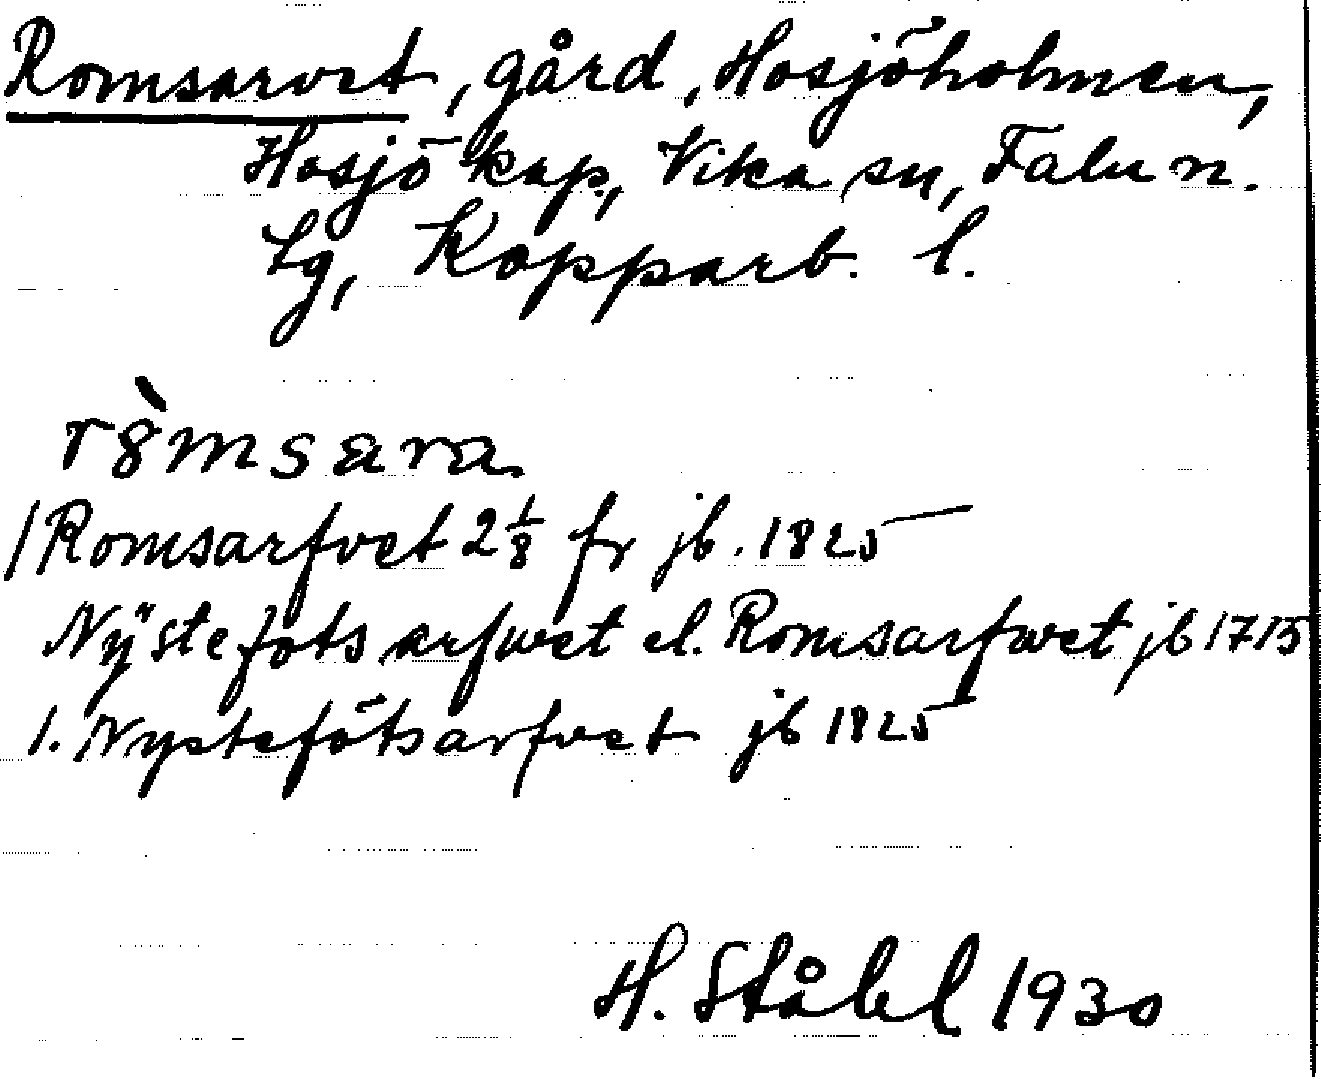 Romsarvet, gård, Hosjöholmen,
Hosjö kap, Vika sn, Falu n.
Lg, Kopparb. l.
r8̀msara
/Romsarfvet 2 1/8 fr jb. 1825
Nÿstefots arfwet el. Romsarfwet jb 1715
1. Nystefötsarfvet jb 1825
H. Ståhl 1930